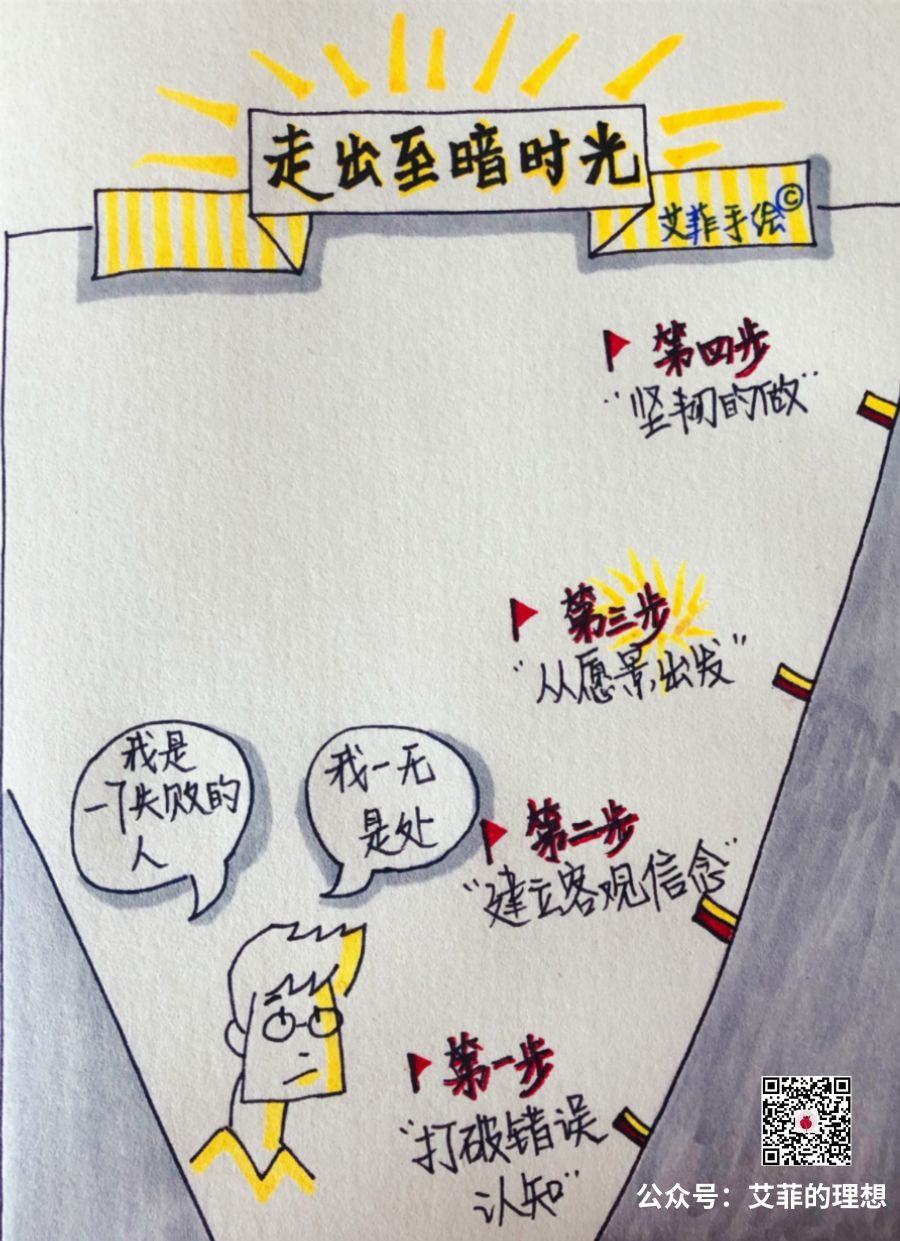 走出至暗时光
艾菲手绘©
第四步
“坚韧的做”
第三步
“从愿景出发”
我是
一个失败的
人
我一无
是处
第二步
“建立客观信念”
第一步
“打破错误
认知”
公众号：艾菲的理想